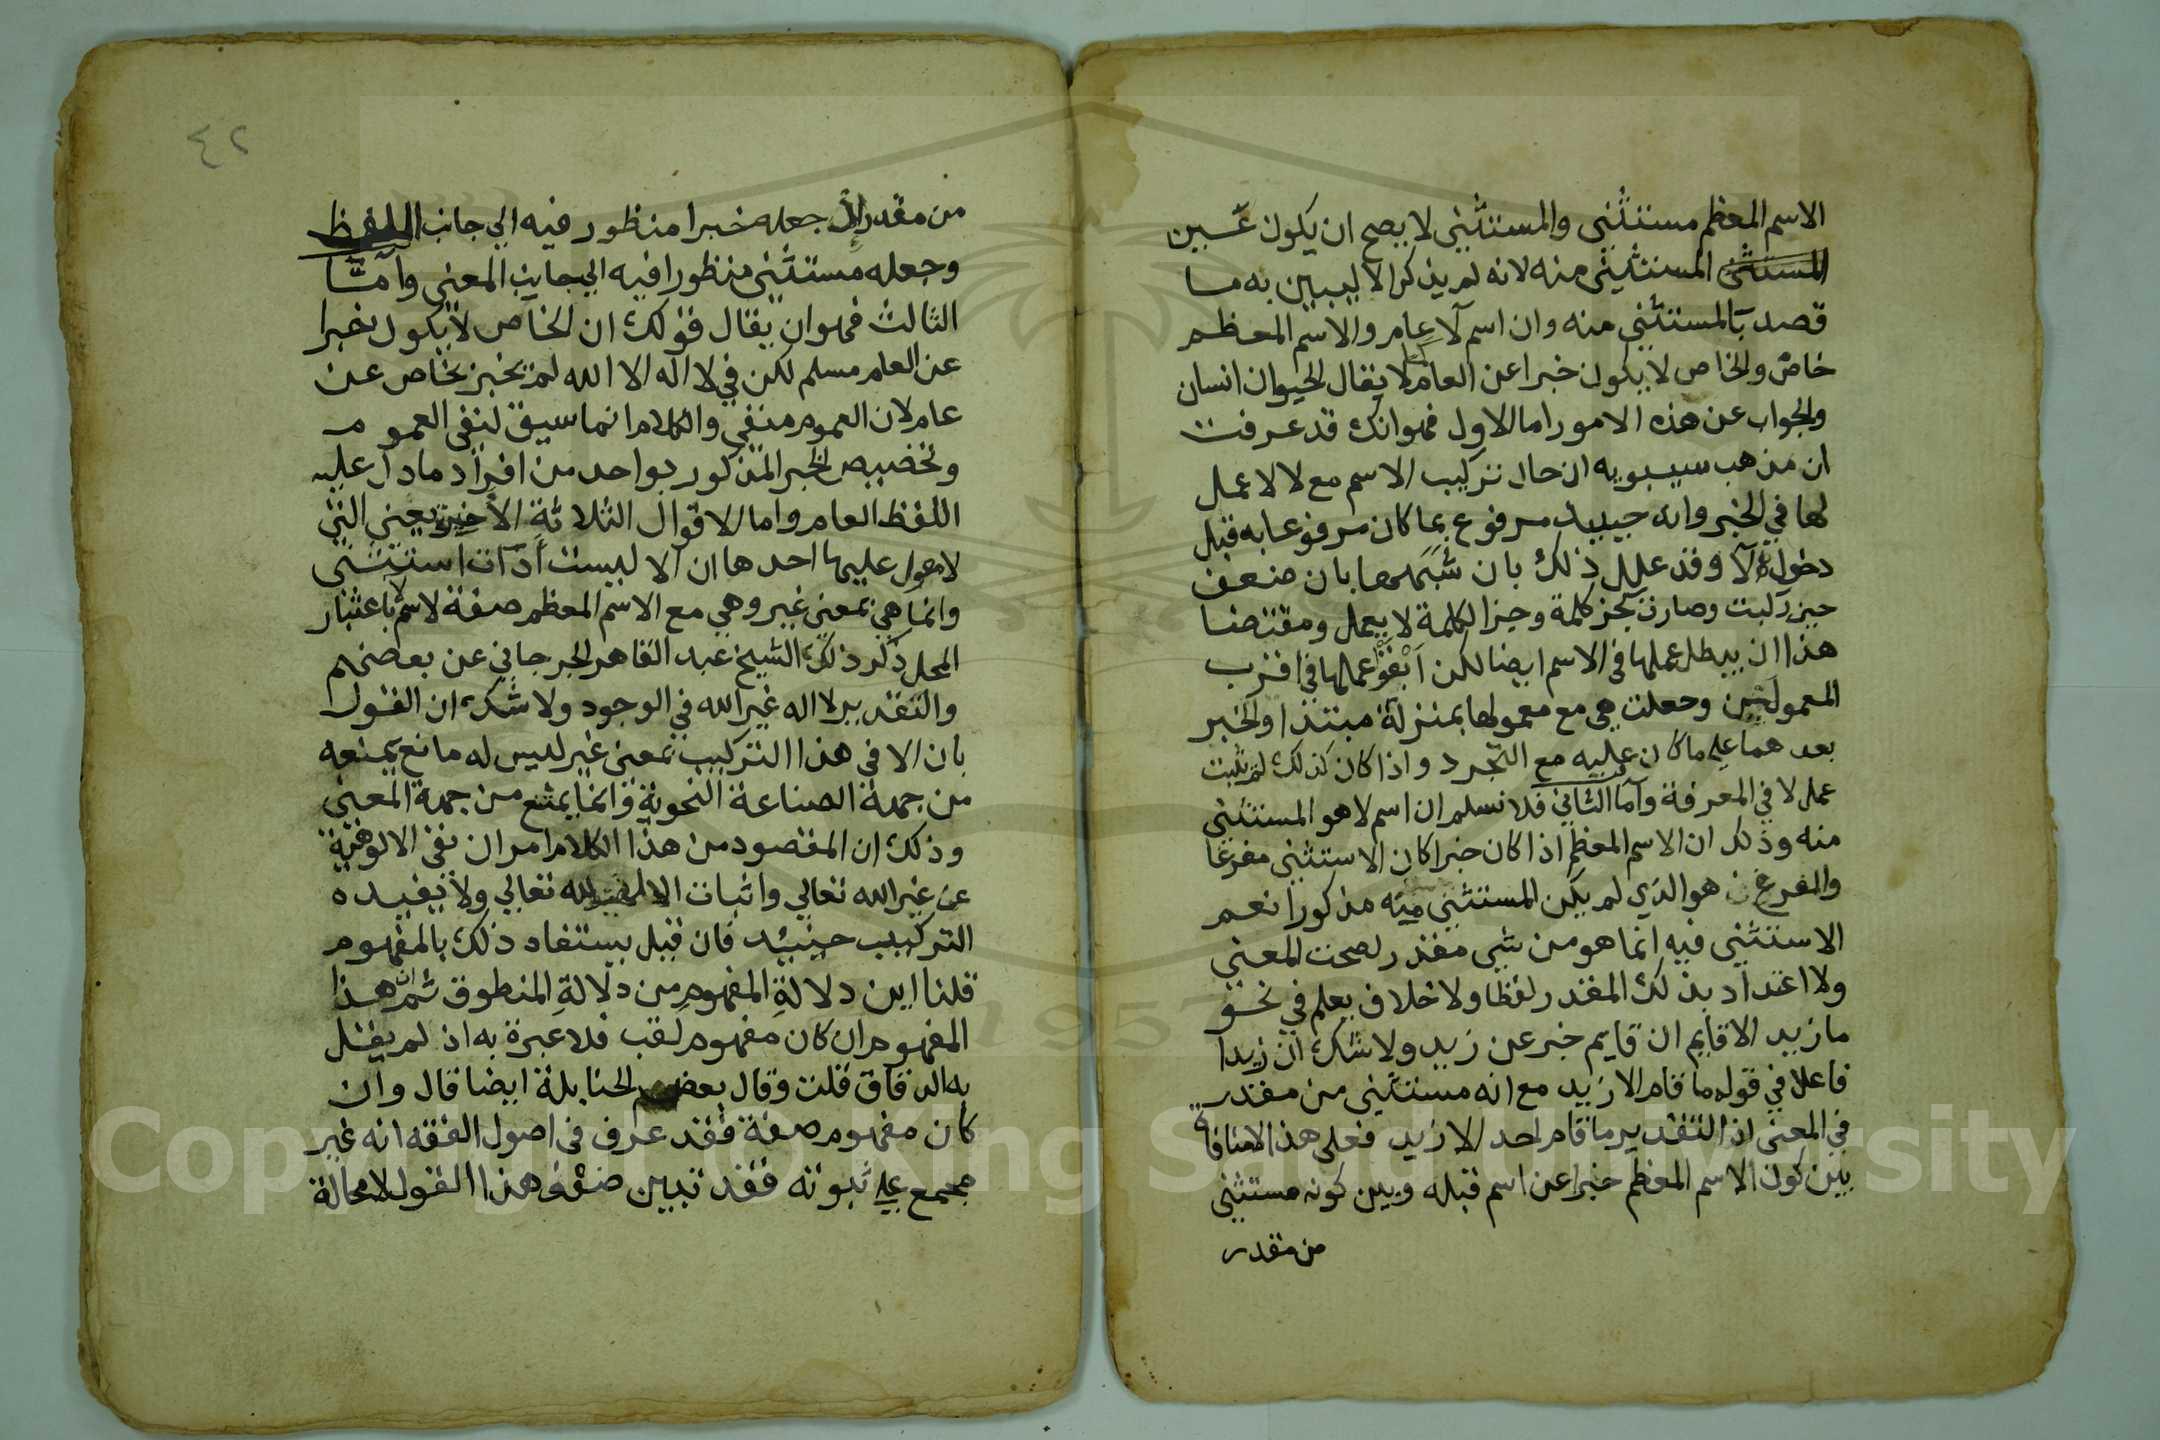 الاسم المعظم مستثنى والمستثنى لا يصح ان يكون عين
المستثنى المستثنى منه لانه لم يذكر الا ليبين به ما
قصد بالمستثنى منه وان اسم لا عام والاسم المعظم
خاص والخاص لا يكون خبرا عن العام لا يقال الحيوان انسان
والجواب عن هذه الامور اما الاول فهو انك قد عرفت
ان مذهب سيبويه ان حال تركيب الاسم مع لا لا عمل
لها في الخبر وانه حينيد مرفوع بما كان مرفوعا به قبل
دخول لا وقد علل ذلك بان شبهها بان ضعف
حين ركبت وصارت كجز كلمة وجز الكلمة لا يعمل ومقتضا
هذا ان يبطل عملها في الاسم ايضا لكن ابقوا عملها في اقرب
المعمولين وجعلت هي مع معمولها بمنزلة مبتدا والخبر
بعدهما على ما كان عليه مع التجرد واذا كان كذلك لم يثبت
عمل لا في المعرفة واما الثاني فلا نسلم ان اسم لا هو المستثنى
منه وذلك ان الاسم المعظم اذا كان خبرا كان الاستثنى مفرغا
والمفرغ هو الذي لم يكن المستثنى منه مذكورا نعم
الاستثنى فيه انما هو من شي مقدر لصحت المعنى
ولا اعتداد بذلك المقدر لفظا ولا خلاف يعلم في نحو
ما زيد الا قايم ان قايم خبر عن زيد ولا شك ان زيدا
فاعلا في قوله ما قام الا زيد مع انه مستثنى من مقدر
في المعنى اذ التقدير ما قام احد الا زيد فعلى هذا لا منافاة
بين كون الاسم المعظم خبرا عن اسم قبله وبين كونه مستثنى
من مقدر
٤٢
من مقدر لان جعله خبرا منظور فيه الي جانب اللفظ
وجعله مستثنى منظورا فيه الي جانب المعنى واما
الثالث فهو ان يقال قولك ان الخاص لا يكون خبرا
عن العام مسلم لكن في لا اله الا الله لم يخبز بخاص عن
عام لان العموم منفي والكلام انما سيق لنفي العموم
وتخصيص الخبر المذكور بواحد من افراد ما دل عليه
اللفظ العام واما الاقوال الثلاثة الاخيرة يعنى التي
لا معول عليها احدها ان الا ليست اداة استثنى
وانما هي بمعنى غير وهي مع الاسم المعظم صفة لاسم لا باعتبار
المحل ذكر ذلك الشيخ عبد القاهر الجرجاني عن بعضهم
والتقدير لا اله غير الله في الوجود ولا شك ان القول
بان الا في هذا التركيب بمعنى غير ليس له مانع يمنعه
من جهة الصناعة النحوية وانما يمتنع من جهة المعنى
وذلك ان المقصود من هذا الكلام امران نفي الالوهية
عن غير الله تعالي واثبات الالهية لله تعالي ولا يفيده
التركيب حينيد فان قيل يستفاد ذلك بالمفهوم
قلنا اين دلالة المفهوم من دلالة المنطوق ثم هذا
المفهوم ان كان مفهوم لقب فلا عبرة به اذ لم يقل
به الدقاق قلت وقال بعض الحنابلة ايضا قال وان
كان مفهوم صفة فقد عرف في اصول الفقه انه غير
مجمع على ثبوته فقد تبين ضعف هذا القول لا محالة
Copyright © King Saud University
1957